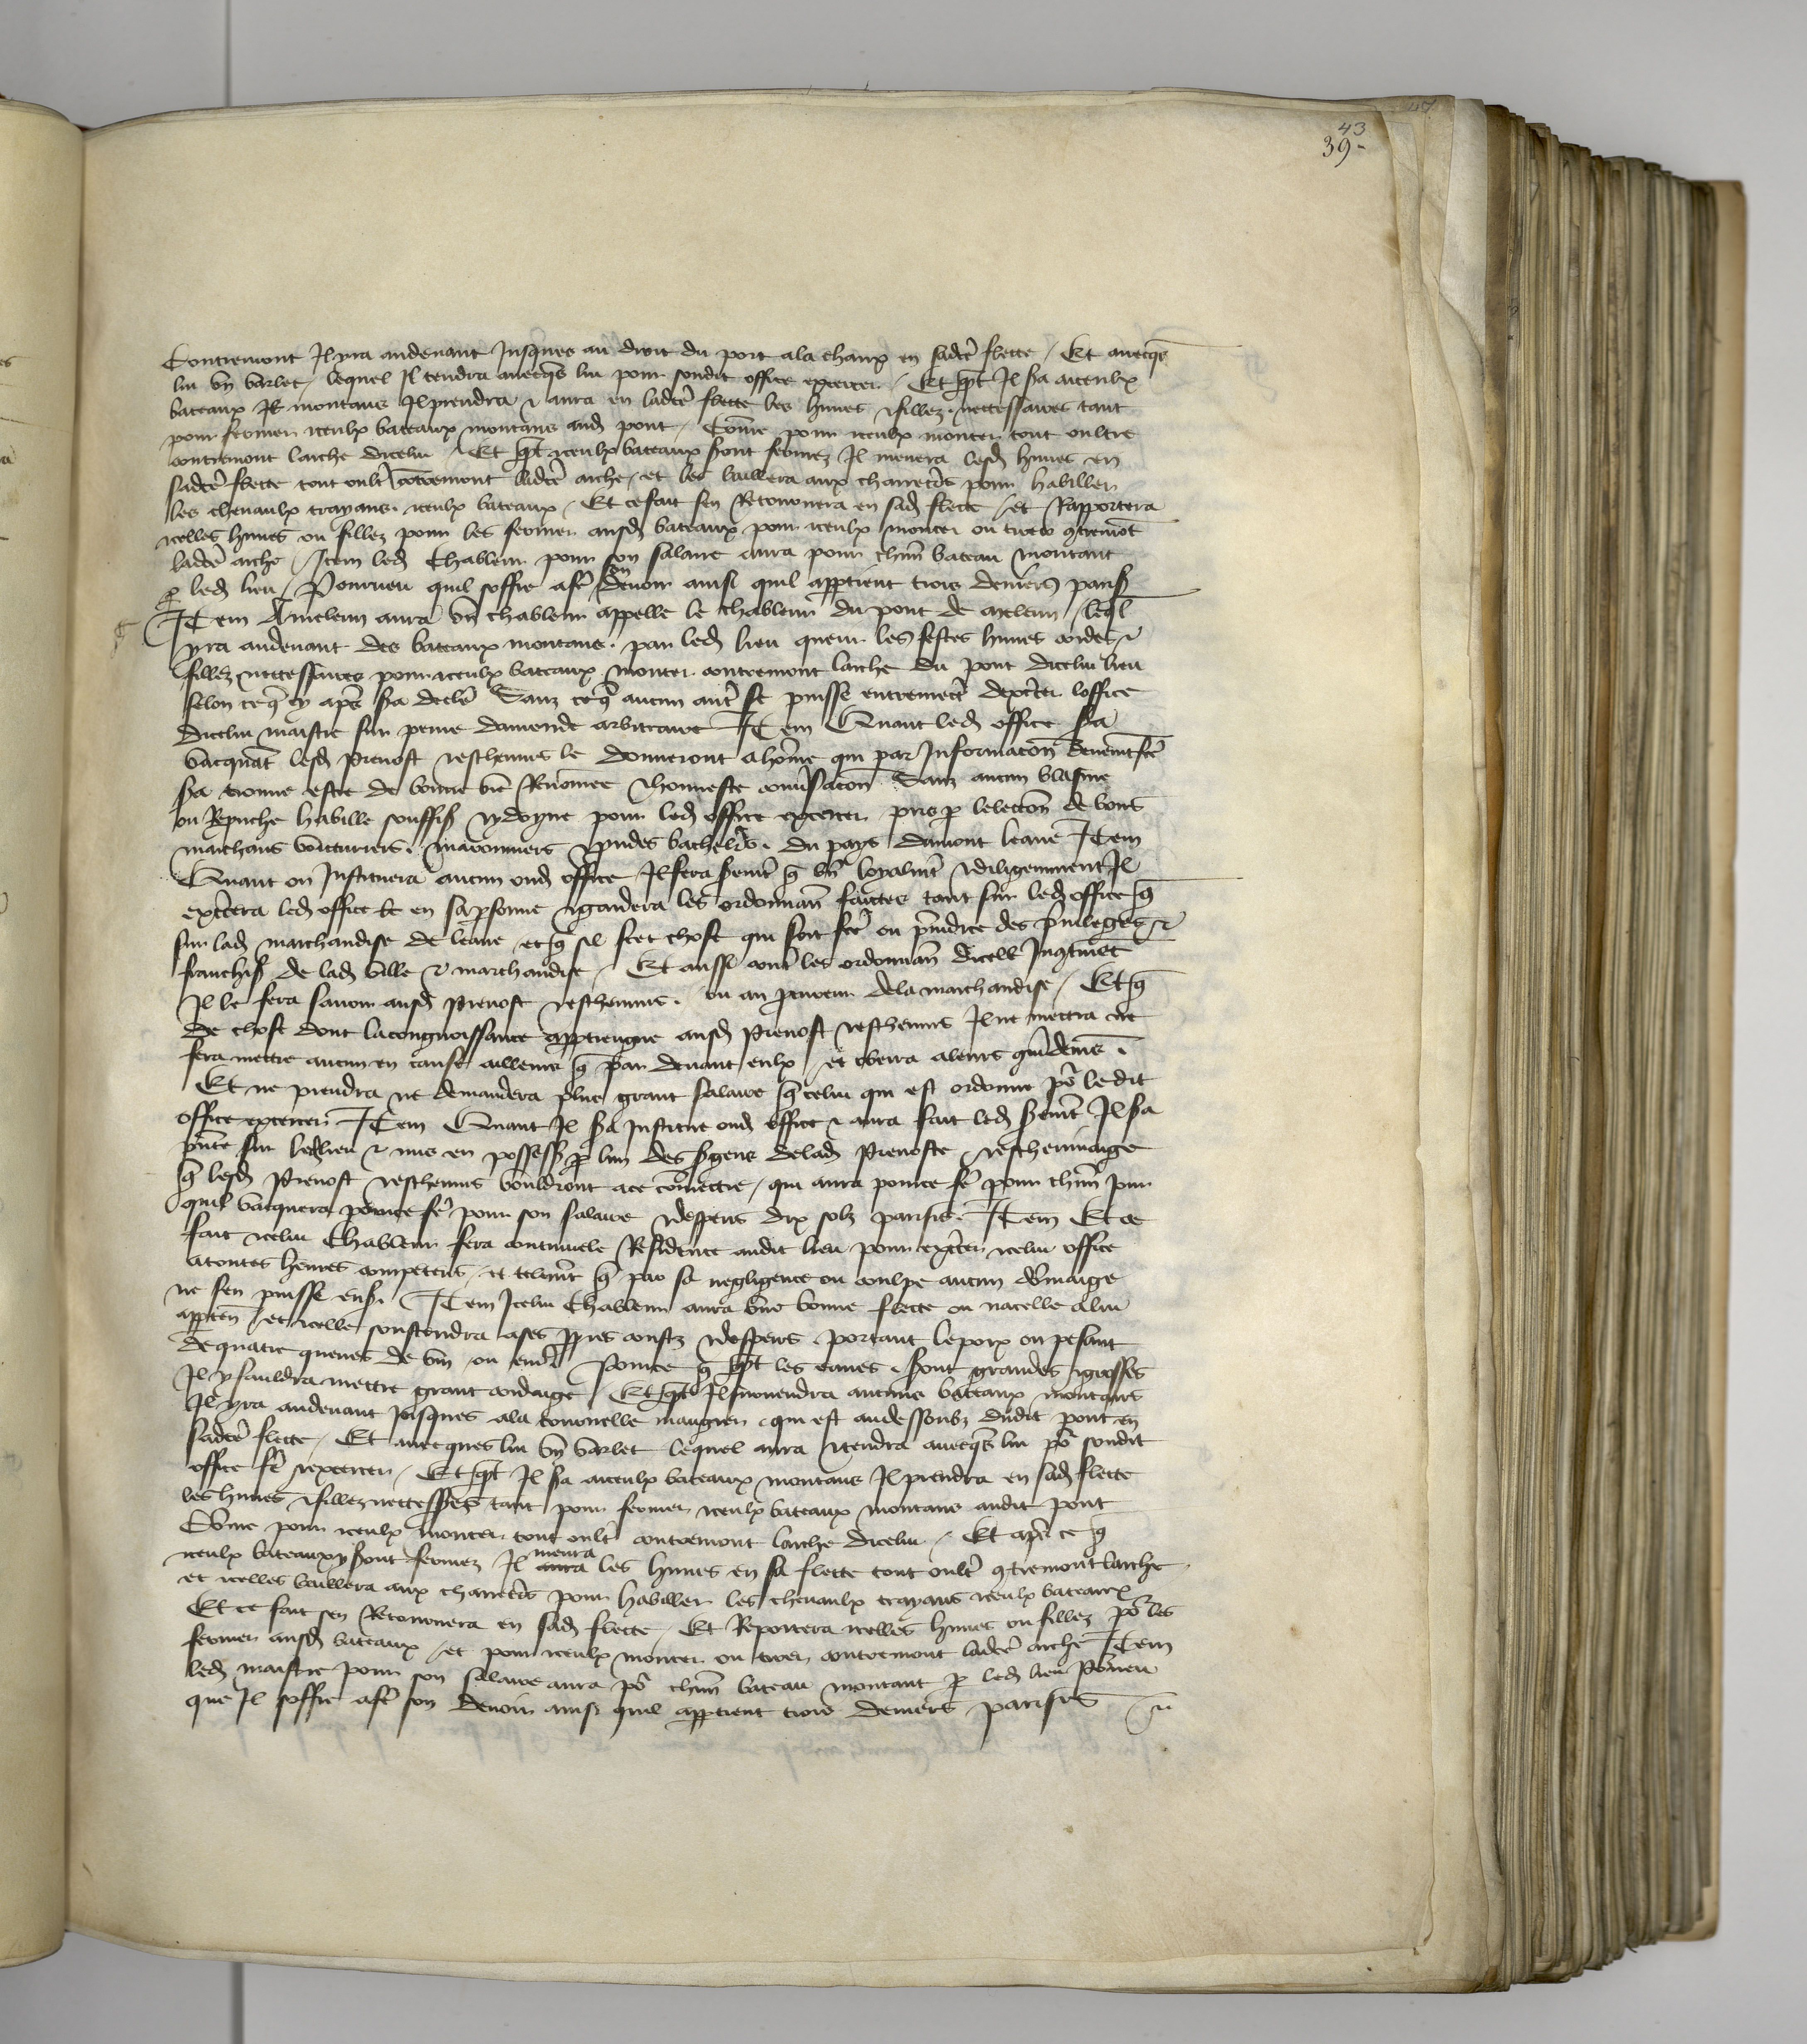 43
39-
Contremont Il yra audevant Jusques au droit du port a la chaux en sadce flecte / Et avecqs
lui un varlet / lequel Il tendra avecqs lui pour sondit office exercer / Et qt Il sa aiceulx
bateaux montans Il prendra & aura en ladce flecte les hunes & fillez necessaires tant
pour fermer iceulx bateaux montans aud pont / Come pour iceulx monter tout oultre
contremont larche dicelui / Et qt iceulx bateaux sont fermez Il menera lesd hunes en
sadce flecte tout oult contremont ladce arche / et les baillera aux charretrs pour habiller
les chevaulx trayans iceulx bateaux / Et ce fait sen Retournera en sad flecte / et Rapportera
icelles hunes ou fillez pour les fermer ausd bateaux pour iceulx monter ou tirer 9tremot
ladce arche / Item led Chableur pour son salaire aura pour chun bateau montant
p led lieu / Pourveu quil soffre afe son devoir ainsi quil appartient trois deniers paris
Item A meleun aura un chableur appelle le chableur du pont de meleun / leql
yra audevant des bateaux montans par led lieu querir les festes hunes cordes &
fillez necessaires pour iceulx bateaux monter contremont larche du pont dicelui lieu
selon ce q cy apres sa decle Sanz ce q aucun aut se puisse entremectre dexcer loffice
dicelui maistre sur peine damende arbitraire Item Quant led office sa
vacquat lesd Prevost & eschevins le donneront a home qui par Informacon deuemt fce
sa trouve estre de bonne vie Renomee & honneste convsacon Sanz aucun blasme
ou Repruche habille souffis & ydoyne pour led office exercer pris p lelection de bons
marchans voicturiers mavonniers & pudes bachelrs du pays damont leaue Item
Quant on Instituera aucun oud office Il fera sermt q bn loyalmt & diligemment Il
excera led office & en sa psonne & gardera les ordonnan faictes tant sur led office q
sur lad marchandise de leaue et q sil scet chose qui soit fce ou preiudice des privileges &
franchis de lad ville & marchandise / Et aussi cont les ordonnan dicelle Incotinet
Il le fera savoir ausd Prevost & eschevins ou au procureur de la marchandise / Et q
de chose dont la congnoissance appartiengne ausd Prevost & eschevins Il ne mectra ne
fera mectre aucun en cause ailleurs q par devant eulx / et obeira a leurs comandems
Et ne prendra ne demandera plus grant salaire q celui qui est ordonne po ledit
office exercer Item Quant Il sa Institue oud office & aura fait led sermt Il sa
pnte sur led lieu & mis en possess p lun des sgens de lad Prevoste & eschevinaige
q lesd Prevost & eschevins vouldront ace comectre / qui aura pour ce fe pour chun jour
quil vacquera pour ce fe pour son salaire & despens dix solz parisis Item Et ce
fait icelui Chableur fera continuele Residence audit lieu pour excer icelui office
a toutes heures competens / et telemt q par sa negligence ou coulpe aucun domaige
ne sen puisse ens Item Icelui Chableur aura une bonne flecte ou nacelle a lui
apparten / et icelle soustendra a ses ppres coustz & despens portant le poix ou pesant
de quatre queues de vin ou envir Pource q qt les eaues sont grandes & grosses
Il y fauldra mectre grant cordaige / Et qt Il survendra aucuns bateaux montans
Il yra audevant Jusques a la tournelle maugier qui est au dessoubz dudit pont en
sadce flecte / Et avecques lui un varlet lequel aura & tendra avecqs lui po sondit
office fe & exercer / Et qt Il sa aiceulx bateaux montans Il prendra en sad flecte
les hunes & fillez necesses tant pour fermer iceulx bateaux montans audit pont
Come pour iceulx monter tout oult contremont larche dicelui / Et apres ce q
iceulx bateaux y sont fermez Il aura menra les hunes en sa flecte tout oult 9tremont larche
et icelles baillera aux charretrs pour habiller les chevaulx trayans iceulx bateaux
Et ce fait sen Retournera en sad flecte / Et Reportera icelles hunes ou fillez po les
fermer ausd bateaux / et pour iceulx monter ou tirer contremont ladce arche Item
led maistre pour son salaire aura po chun bateau montant p led lieu Pourveu
que Il soffre afe son devoir ainsi quil appartient trois deniers parisis